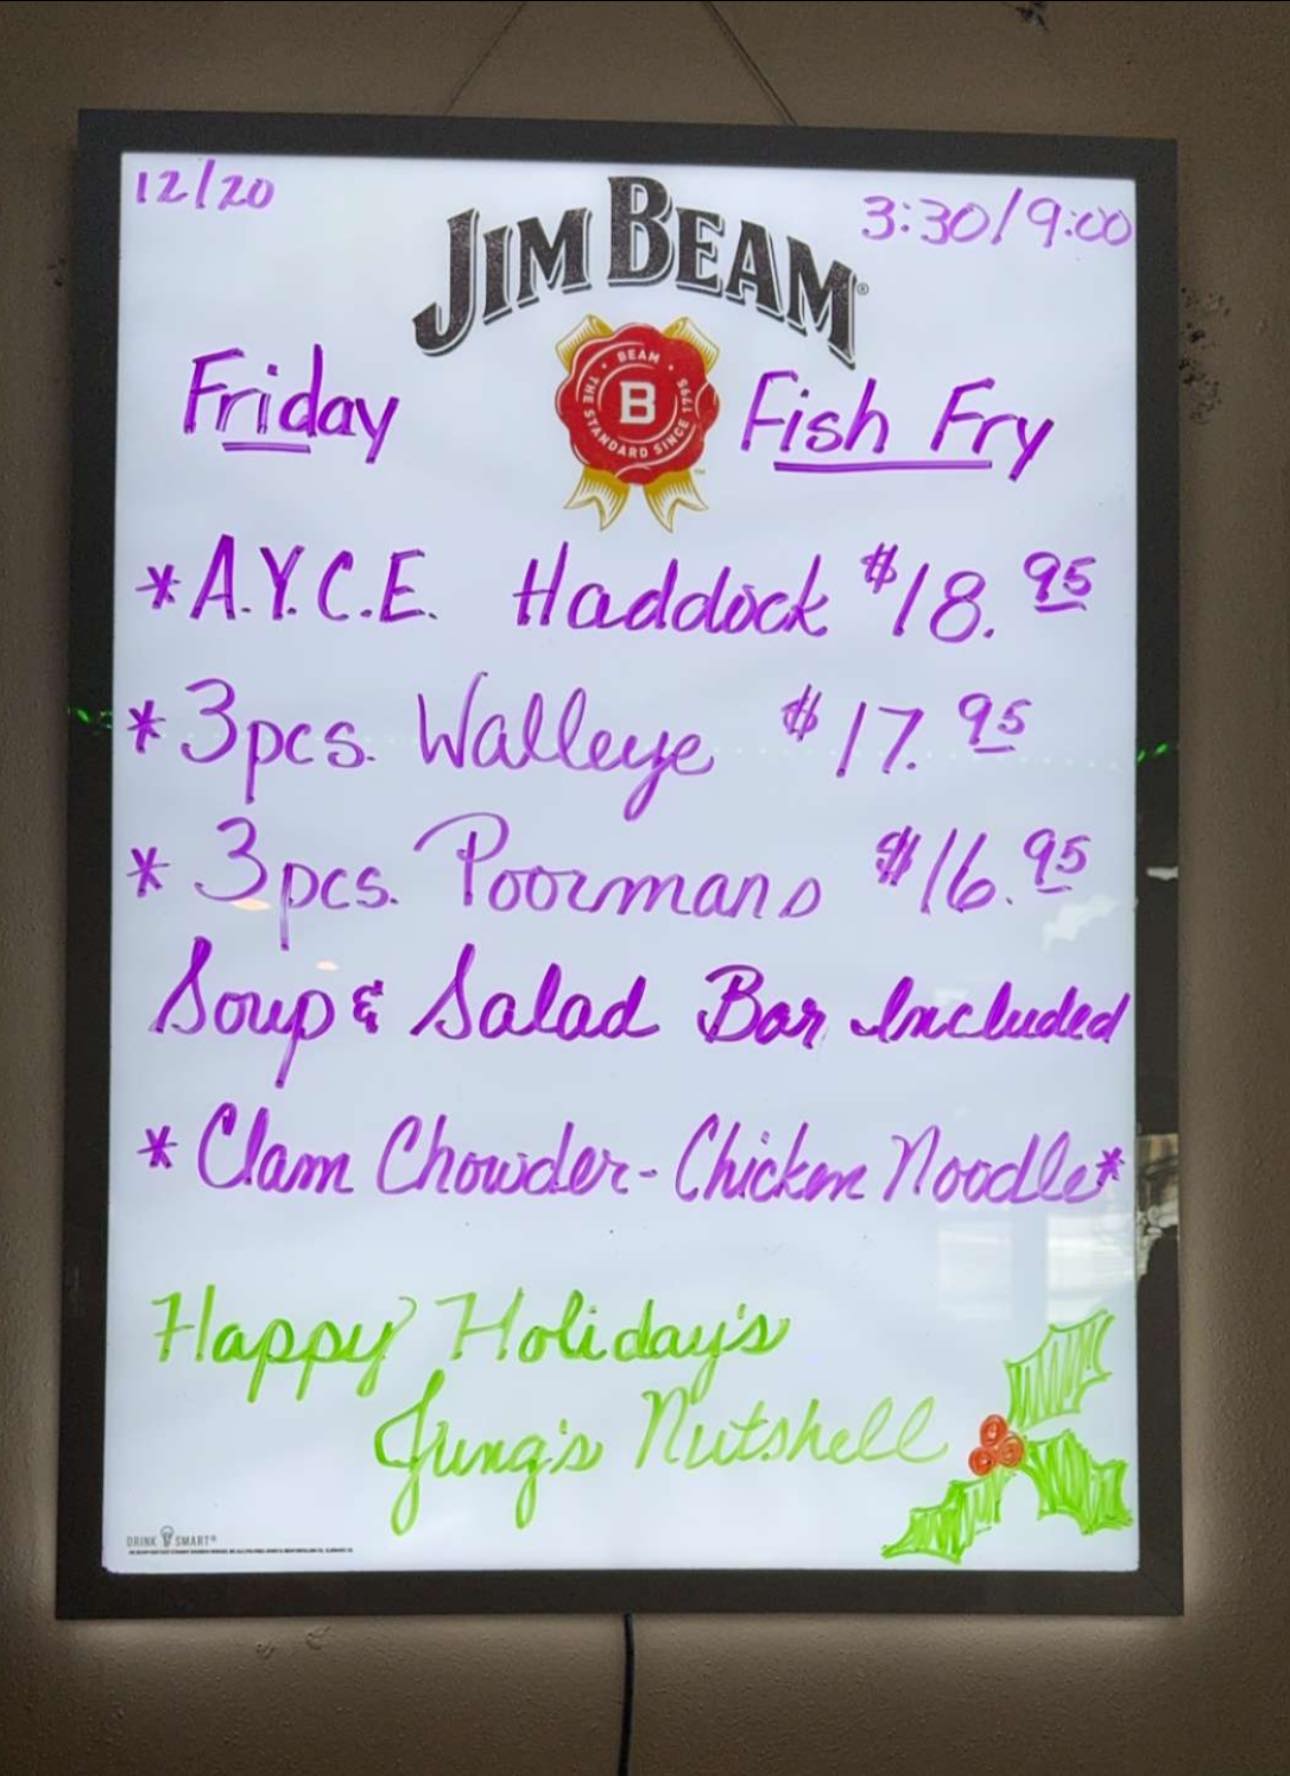 12/20
3:30/9:00
JIM BEAM®
BEAM
B
THE STANDARD SINCE 1795
™
Friday
Fish Fry
*A.Y.C.E. Haddock $18.95
*3pcs. Walleye $17.95
*3pcs. Poormans $16.95
Soup & Salad Bar Included
*Clam Chowder-Chicken Noodle*
Happy Holiday's
Jung's Nutshell
DRINK SMART®